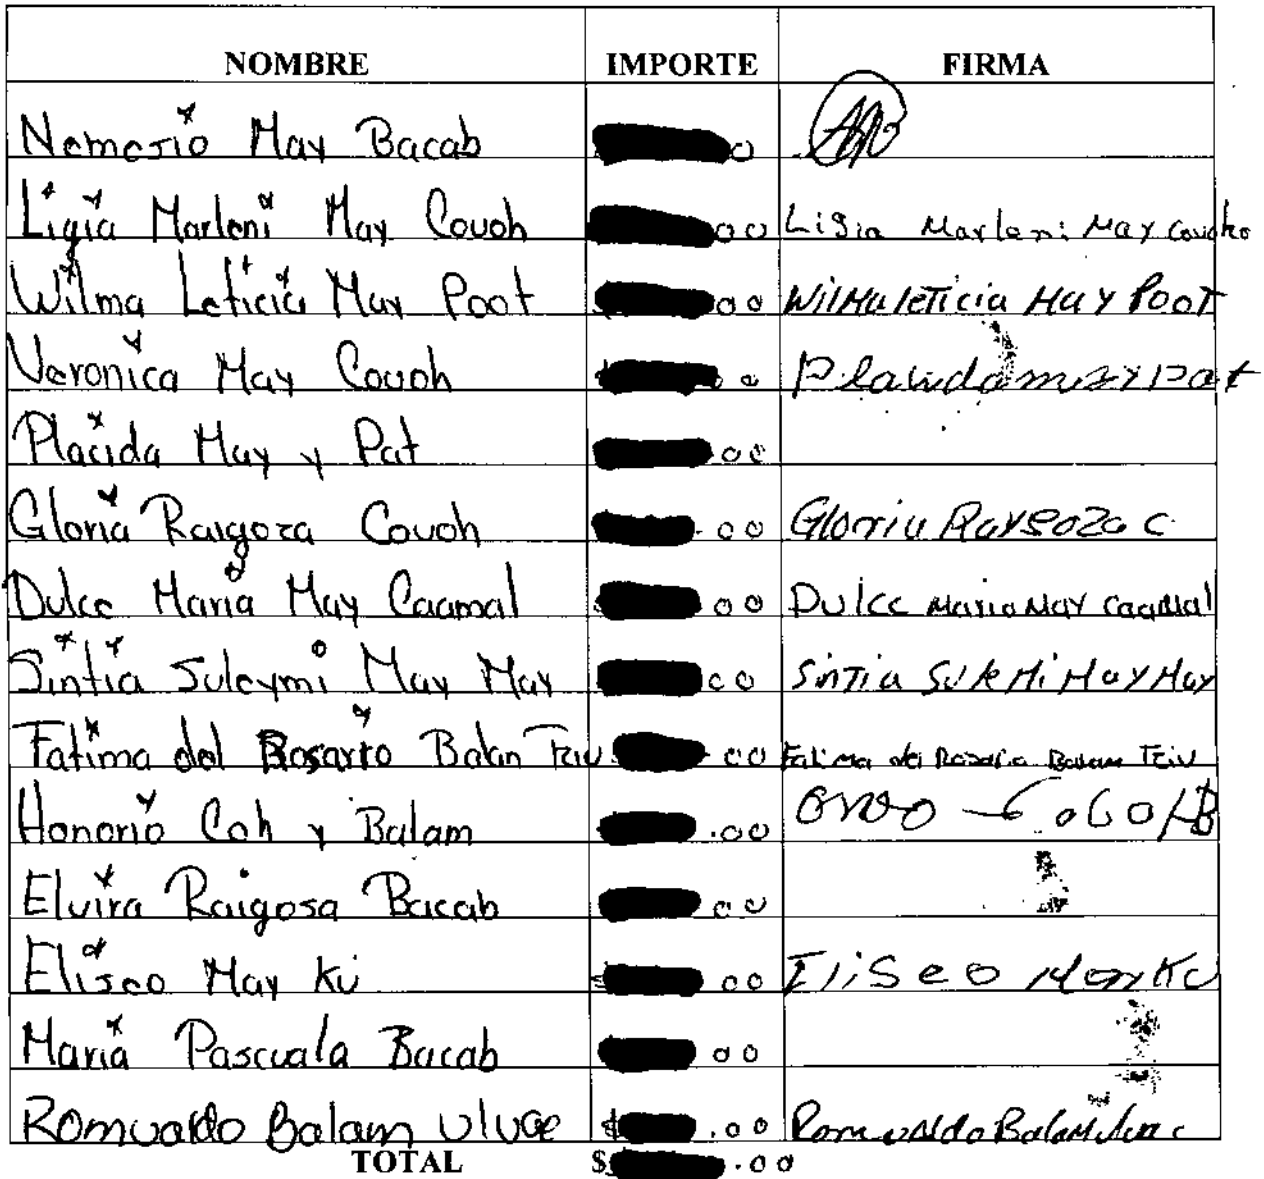 NOMBRE IMPORTE FIRMA
Nemesio May Bacab 0
Ligia Marleni May Couoh 00 Ligia Marleni May Couoho
Wilma Leticia May Poot 00 Wilma leticia May Poot
Veronica May Couoh 00 Placida may Pat
Placida May y Pat .00
Gloria Raigoza Couoh .00 Gloria Raygoza C
Dulce Maria May Caamal 00 Dulce Maria May Caamal
Sintia Suleymi May May 00 Sintia Sulemi May May
Fatima del Rosario Balan Tziu 00 Fatima del Rosario Balam Tziu
Honorio Coh y Balam .00
Elvira Raigosa Bacab 00
Eliseo May Ku 00 Eliseo May Ku
Maria Pascuala Bacab 00
Romualdo Balam Uluac $ .00 Romualdo Balam Uluac
TOTAL $ .00